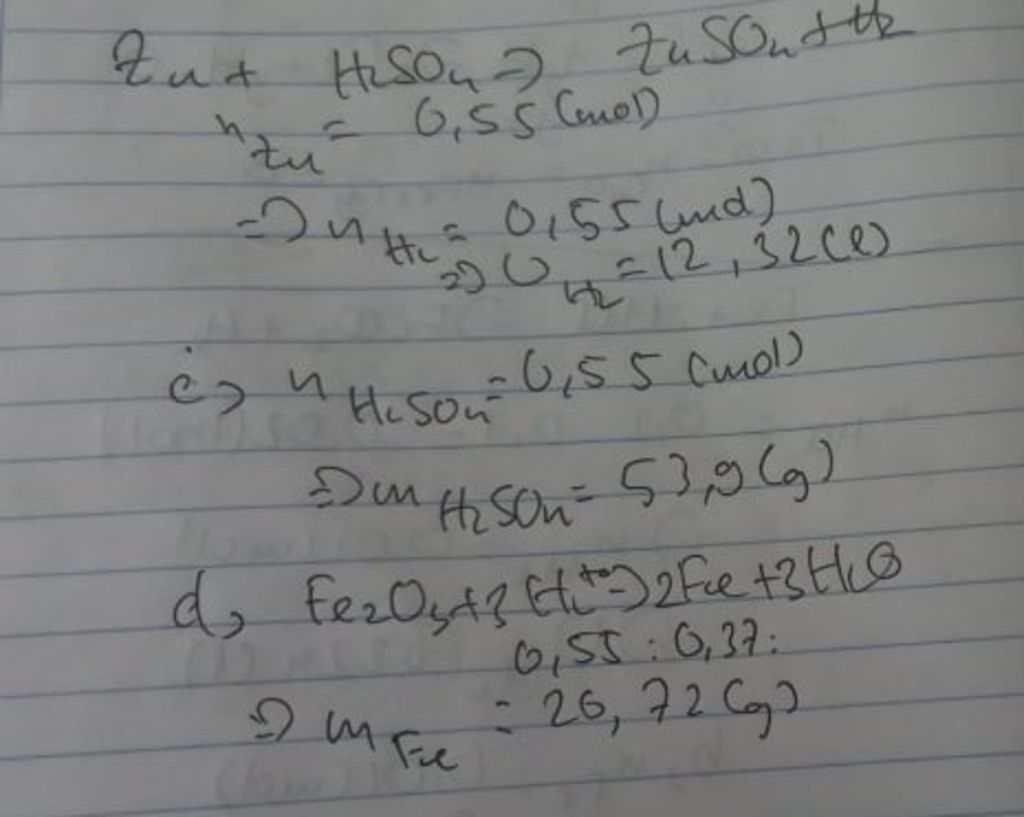 Zn + H2SO4 => ZnSO4 + H2
nZn = 0,55 (mol)
=> nH2 = 0,55 (mol)
=> VH2 = 12,32 (l)
c, nH2SO4 = 0,55 (mol)
=> mH2SO4 = 53,9 (g)
d, Fe2O3 + 3H2 t°=> 2Fe + 3H2O
0,55 : 0,37 :
=> mFe = 20,72 (g)